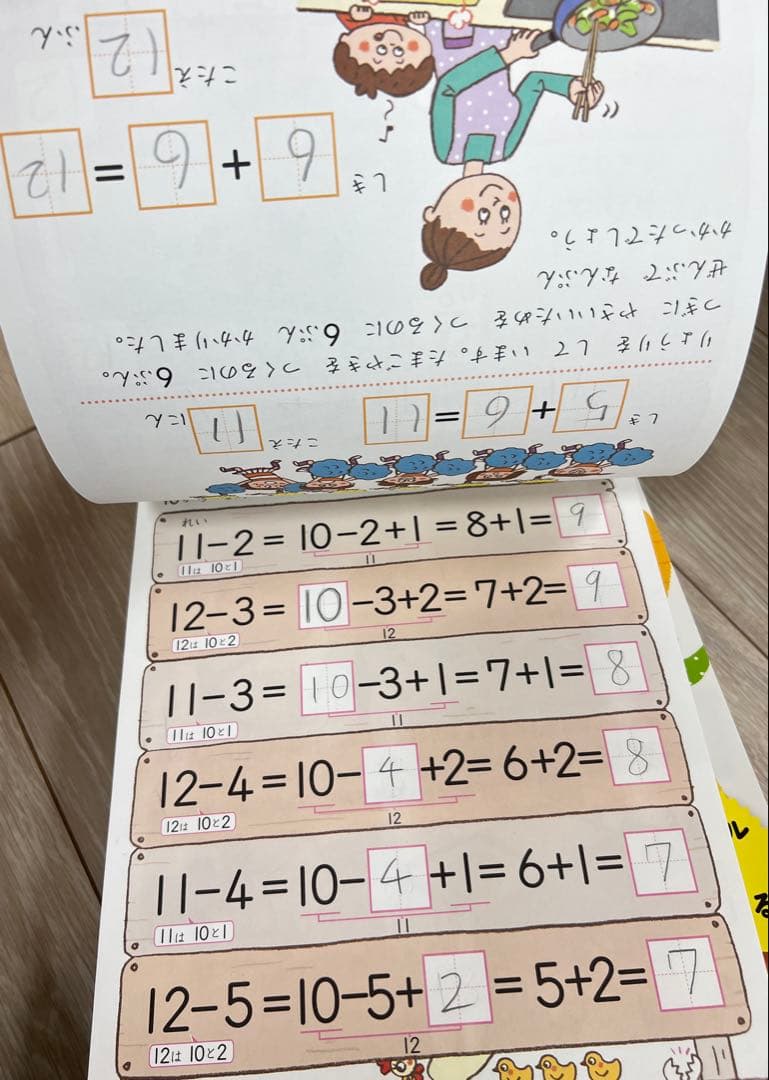 りょうりを して います。たまごやきを つくるのに 6ぷん。
つぎに やさいいためを つくるのに 6ぷん かかりました。
ぜんぶで なんぷん
かかったでしょう。
しき 6 + 6 = 12
こたえ 12 ぷん
しき 5 + 6 = 11 こたえ 11 にん
れい
11-2 = 10-2+1 = 8+1= 9
11は 10と1 11
12-3 = 10 -3+2= 7+2= 9
12は 10と2 12
11-3 = 10 -3+1=7+1= 8
11は 10と1 11
12-4 = 10- 4 +2= 6+2= 8
12は 10と2 12
11-4 =10- 4 +1= 6+1= 7
11は 10と1 11
12-5 =10-5+ 2 = 5+2= 7
12は 10と2 12
ル